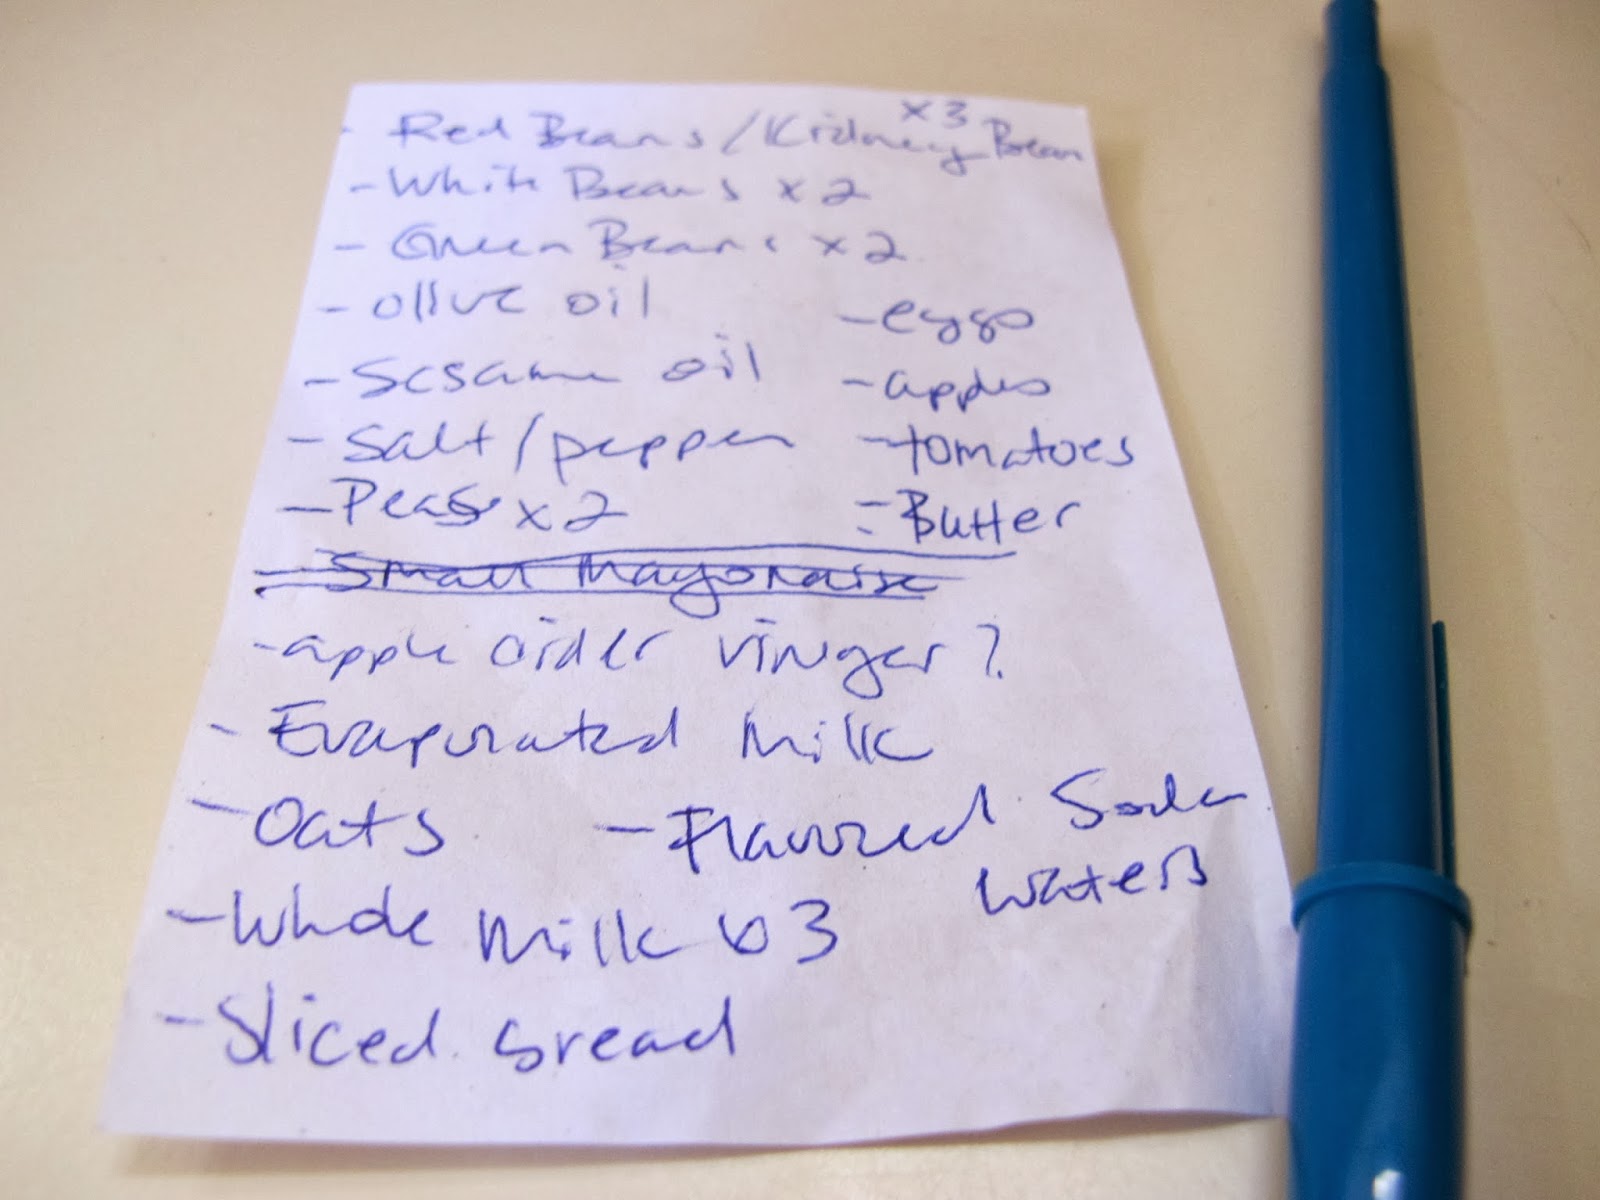 x3
- Red Beans/Kidney Bean
- White Beans x2
- Green Beans x2
- olive oil
- Sesame oil
- Salt/pepper
- Peas x2
- eggs
- apples
- tomatoes
- Butter
- Small Mayonaise
- apple cider vinger?
- Evaporated Milk
- Oats
- Flavored Soda
waters
- Whole Milk 3
- Sliced bread